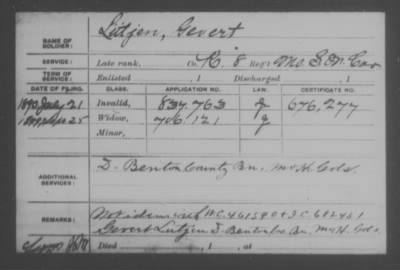 NAME OF SOLDIER: Lütjen, Gevert
SERVICE: Late rank, Co. K. 8 Reg't Mo. S. M. Cav
TERM OF SERVICE: Enlisted , 1 Discharged , 1
DATE OF FILING. CLASS. APPLICATION NO. LAW. CERTIFICATE NO.
1890 July 21 Invalid, 837.763 J 676,277
25 Widow, 706.121 J
Minor,
ADDITIONAL SERVICES: D. Benton County Bn. Mo H. Gds.
REMARKS: Not idem with W.C.
Gevert Lutjen D. Benton Co Bn. Mo H. Gds.
Died , 1 , at